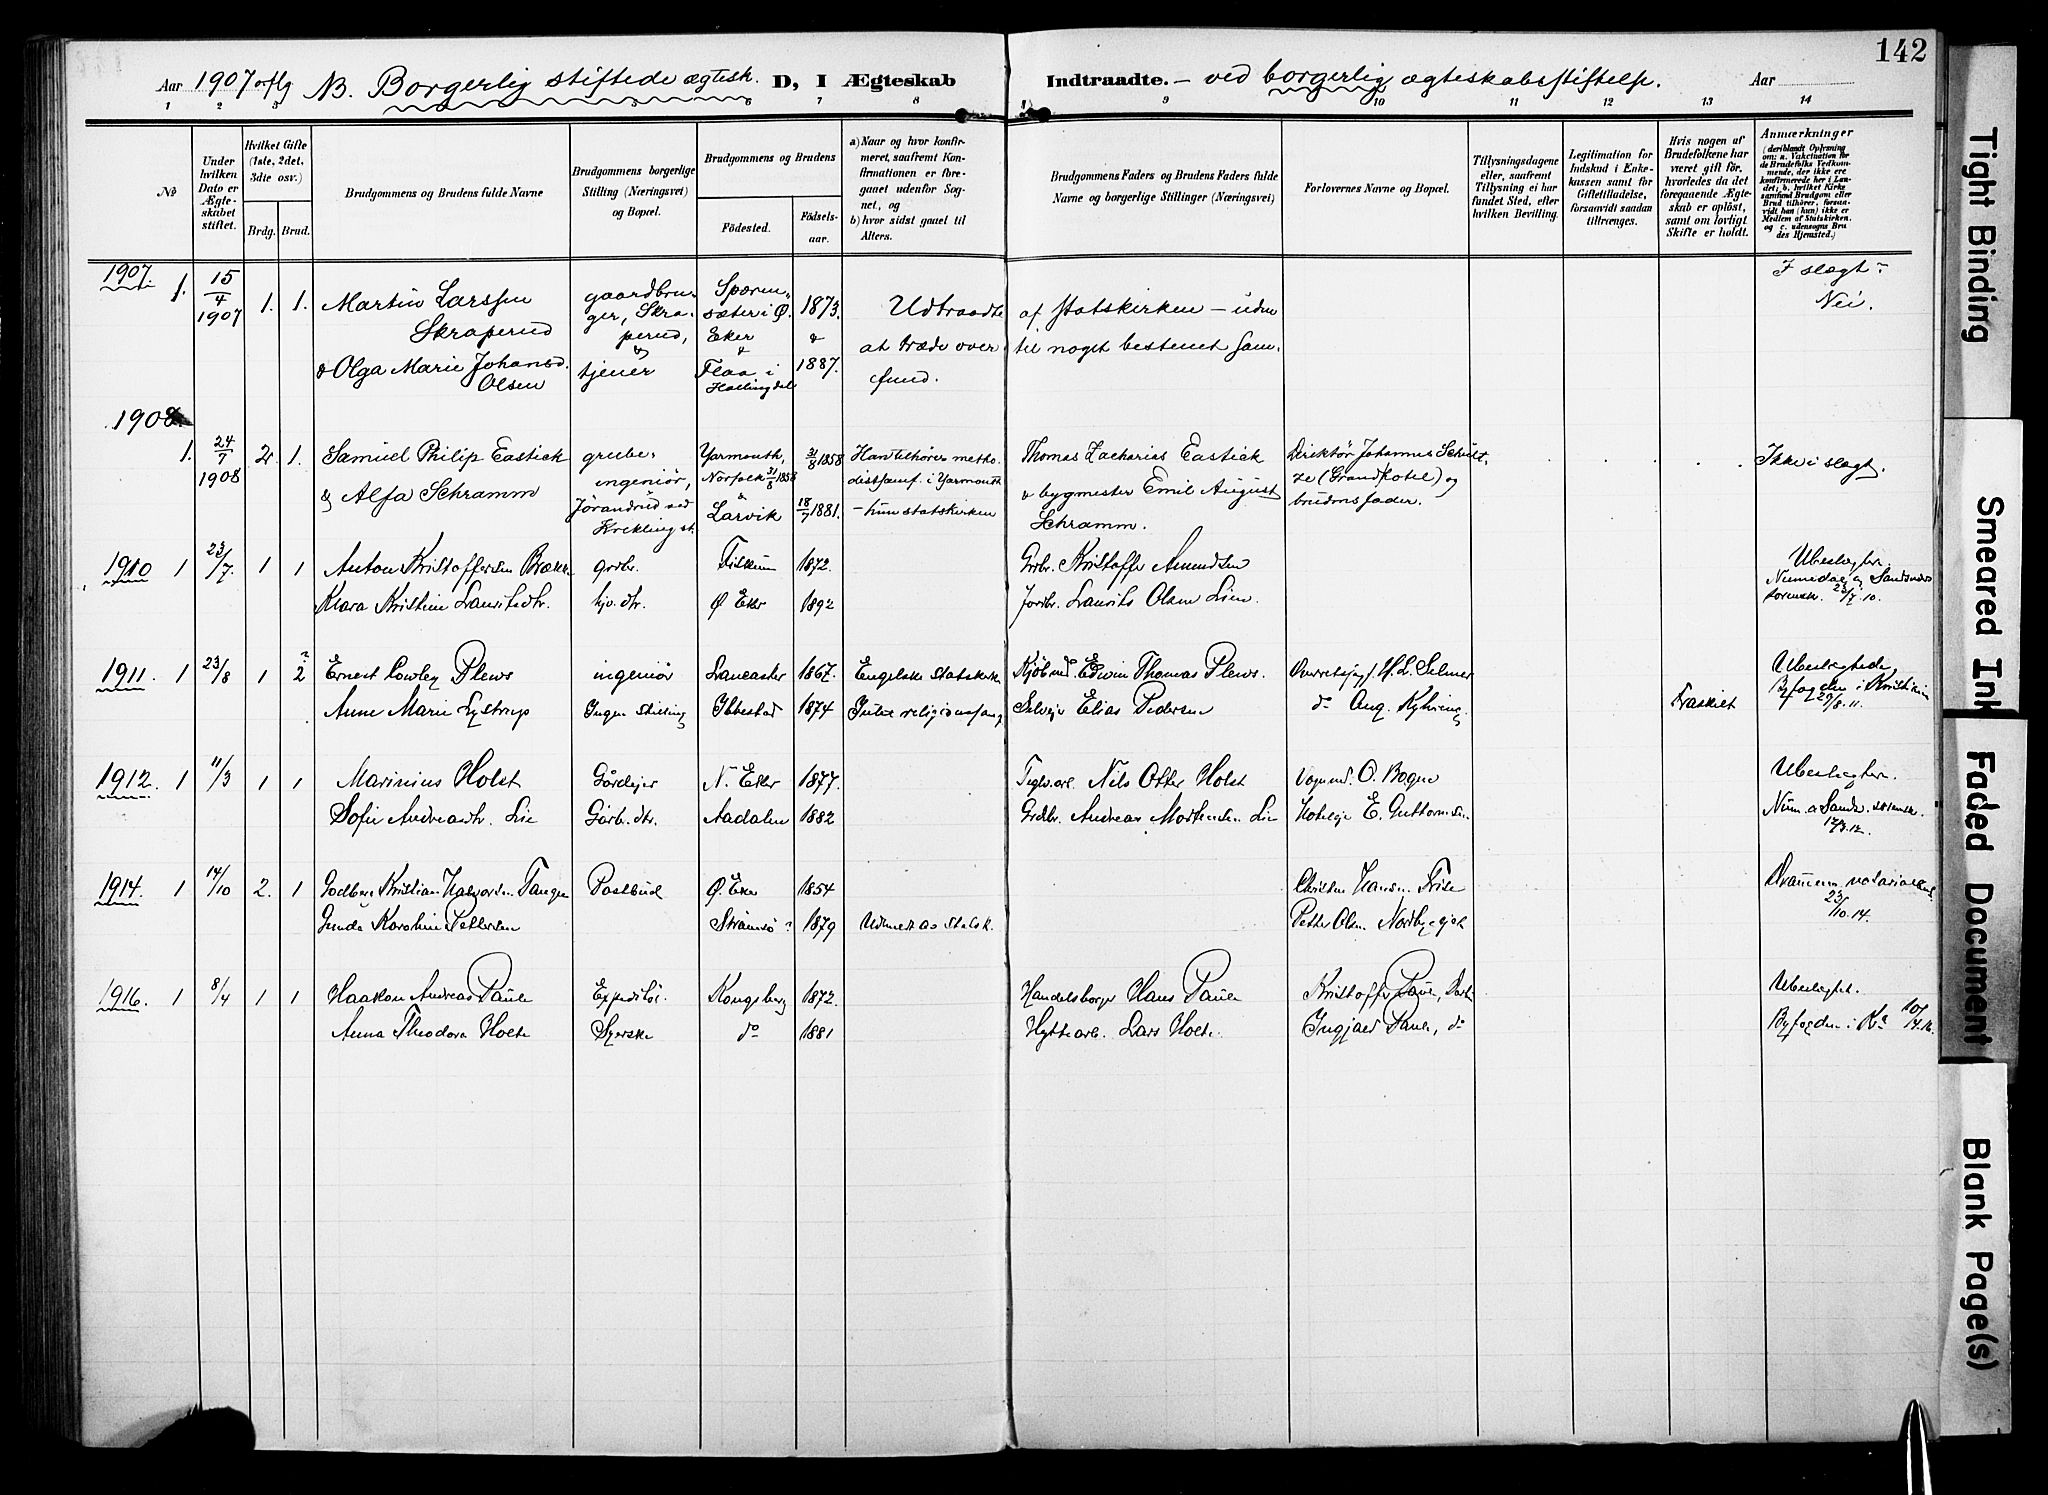 142
Aar 1907 offlg NB. Borgerlig stiftede ægtesk. D, I Ægteskab Indtraadte. – ved borgerlig ægteskabsstiftelse. Aar
1 2 3 5 6 7 8 9 10 11 12 13 14
No
Under hvilken Dato er Ægteskabet stiftet.
Hvilket Gifte (1ste, 2det, 3die osv.)
Brdg. Brud.
Brudgommens og Brudens fulde Navne
Brudgommens borgerlige Stilling (Næringsvei) og Bopæl.
Brudgommens og Brudens
Fødested.
Fødselsaar.
a) Naar og hvor konfirmeret, saafremt Konfirmationen er foregaaet udenfor Sognet, og
b) hvor sidst gaaet til Alters.
Brudgommens Faders og Brudens Faders fulde Navne og borgerlige Stillinger (Næringsvei)
Forlovernes Navne og Bopæl.
Tillysningsdagene eller, saafremt Tillysning ei har fundet Sted, efter hvilken Bevilling.
Legitimation for Indskud i Enkekassen samt for Giftetilladelse, forsaavidt saadan tiltrænges.
Hvis nogen af Brudefolkene har været gift før, hvorledes da det foregaaende Ægteskab er opløst, samt om lovligt Skifte er holdt.
Anmærkninger (deriblandt Oplysning om: a. Vakcination for de Brudefolks Vedkommende, der ikke ere konfirmerede her i Landet; b. hvilket Kirkesamfund Brudgom eller Brud tilhører, forsaavidt han (hun) ikke er Medlem af Statskirken, og c. udensogns Brudes Hjemsted.)
1907.
1. 15/4 1907 1. 1. Martin Larssen Skraperud gaardbruger, Skraperud, Sæter i Ø. Eker 1873. Udtraadte af statskirken – uden I slægt – Nei.
& Olga Marie Johansd. Olsen tjener & Flaa i Hallingdal & 1887. at træde over til noget bestemt samfund.
1908.
1. 24/7 1908 2. 1. Samuel Philip Eastick grubeingeniør, Yarmouth, Norfolk 31/8 1858 31/8 1858 Han tilhører methodistsamf. i Yarmouth Thomas Zacharias Eastick Direktør Johannes Schultze (Grand hotel) og Ikke i slægt.
& Alfa Schramm Jørandrud ved Krekling st. Larvik 18/7 1881. – hun statskirken & bygmester Emil August Schramm. brudens fader.
1910 1 23/7. 1 1 Anton Kristoffersen grbr. Fiskum 1872. Grbr. Kristoffer Amundsen Numedal og Sandsvær sorensk. 23/7.10.
Klara Kristine Lauritsdtr. Ø Eker 1892 Laurits Olsen Lien
1911. 1 23/8 1 2 Ernest Cowley Plews ingeniør Lancaster 1867. Engelske statskirke Kjøbmd. Edwin Thomas Plews. Overretssagf. H. L. Selmer Ubeslegtede,
Anne Marie Lystrup Ingen stilling Ibbestad 1874 Intet religionssamf. Elias Pedersen do Aug. Fraskilt Byfogden i Kristiania 23/8.11.
1912. 1 11/3 1 1 Marinius Holst Gårdejer N. Eker 1877. Nils Otter Holst O. Bogne
Sofie Andreasdtr. Lie Gårb. dtr. Aadalen 1882 Grdbr. Andreas Mortensen Lie E. Guttormsen Num. o Sands. sorensk. 12/3.12.
1914. 1 14/10 2. 1 Kristian Halvorsen Tangen Postbud Ø. Eker 1854 Christen Hansen Frise Drammens notarialkont.
Gunda Karoline Pettersen Strømsø 1879 Udmeldt av Statsk. Petter Olsen 23/10.14.
1916. 1 8/4 1 1 Haakon Andreas Paule Expeditør. Kongsberg 1872. Handelsborger Hans Paule Kristoffer Paule, Ubeslegtet.
Anna Theodora Holte Syerske do 1881 Hyttearb. Lars Holte Paule, do Byfogden i Ka
Tight Binding
Smeared Ink
Faded Document
Blank Page(s)